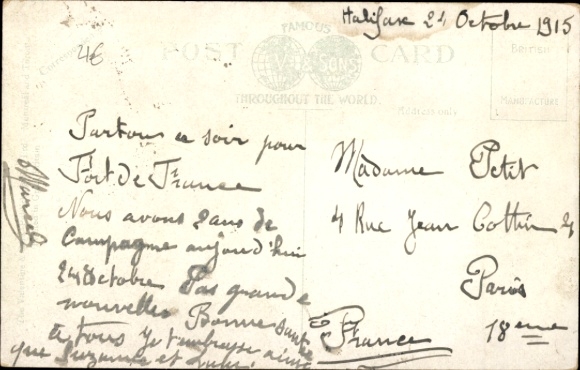 Halifax 24 Octobre 1915
4€
FAMOUS
POST CARD
V & SONS
THROUGHOUT THE WORLD
Address only
BRITISH
MANUFACTURE
Partons ce soir pour
Fort de France
Nous avons 2 ans de
Campagne aujourd'hui
24 Octobre Pas grande
nouvelles Bonne santé
à tous Je t'embrasse ainsi
que Suzanne et
Marcel
Madame Petit
4 Rue Jean Cottin 4
Paris
18eme
France